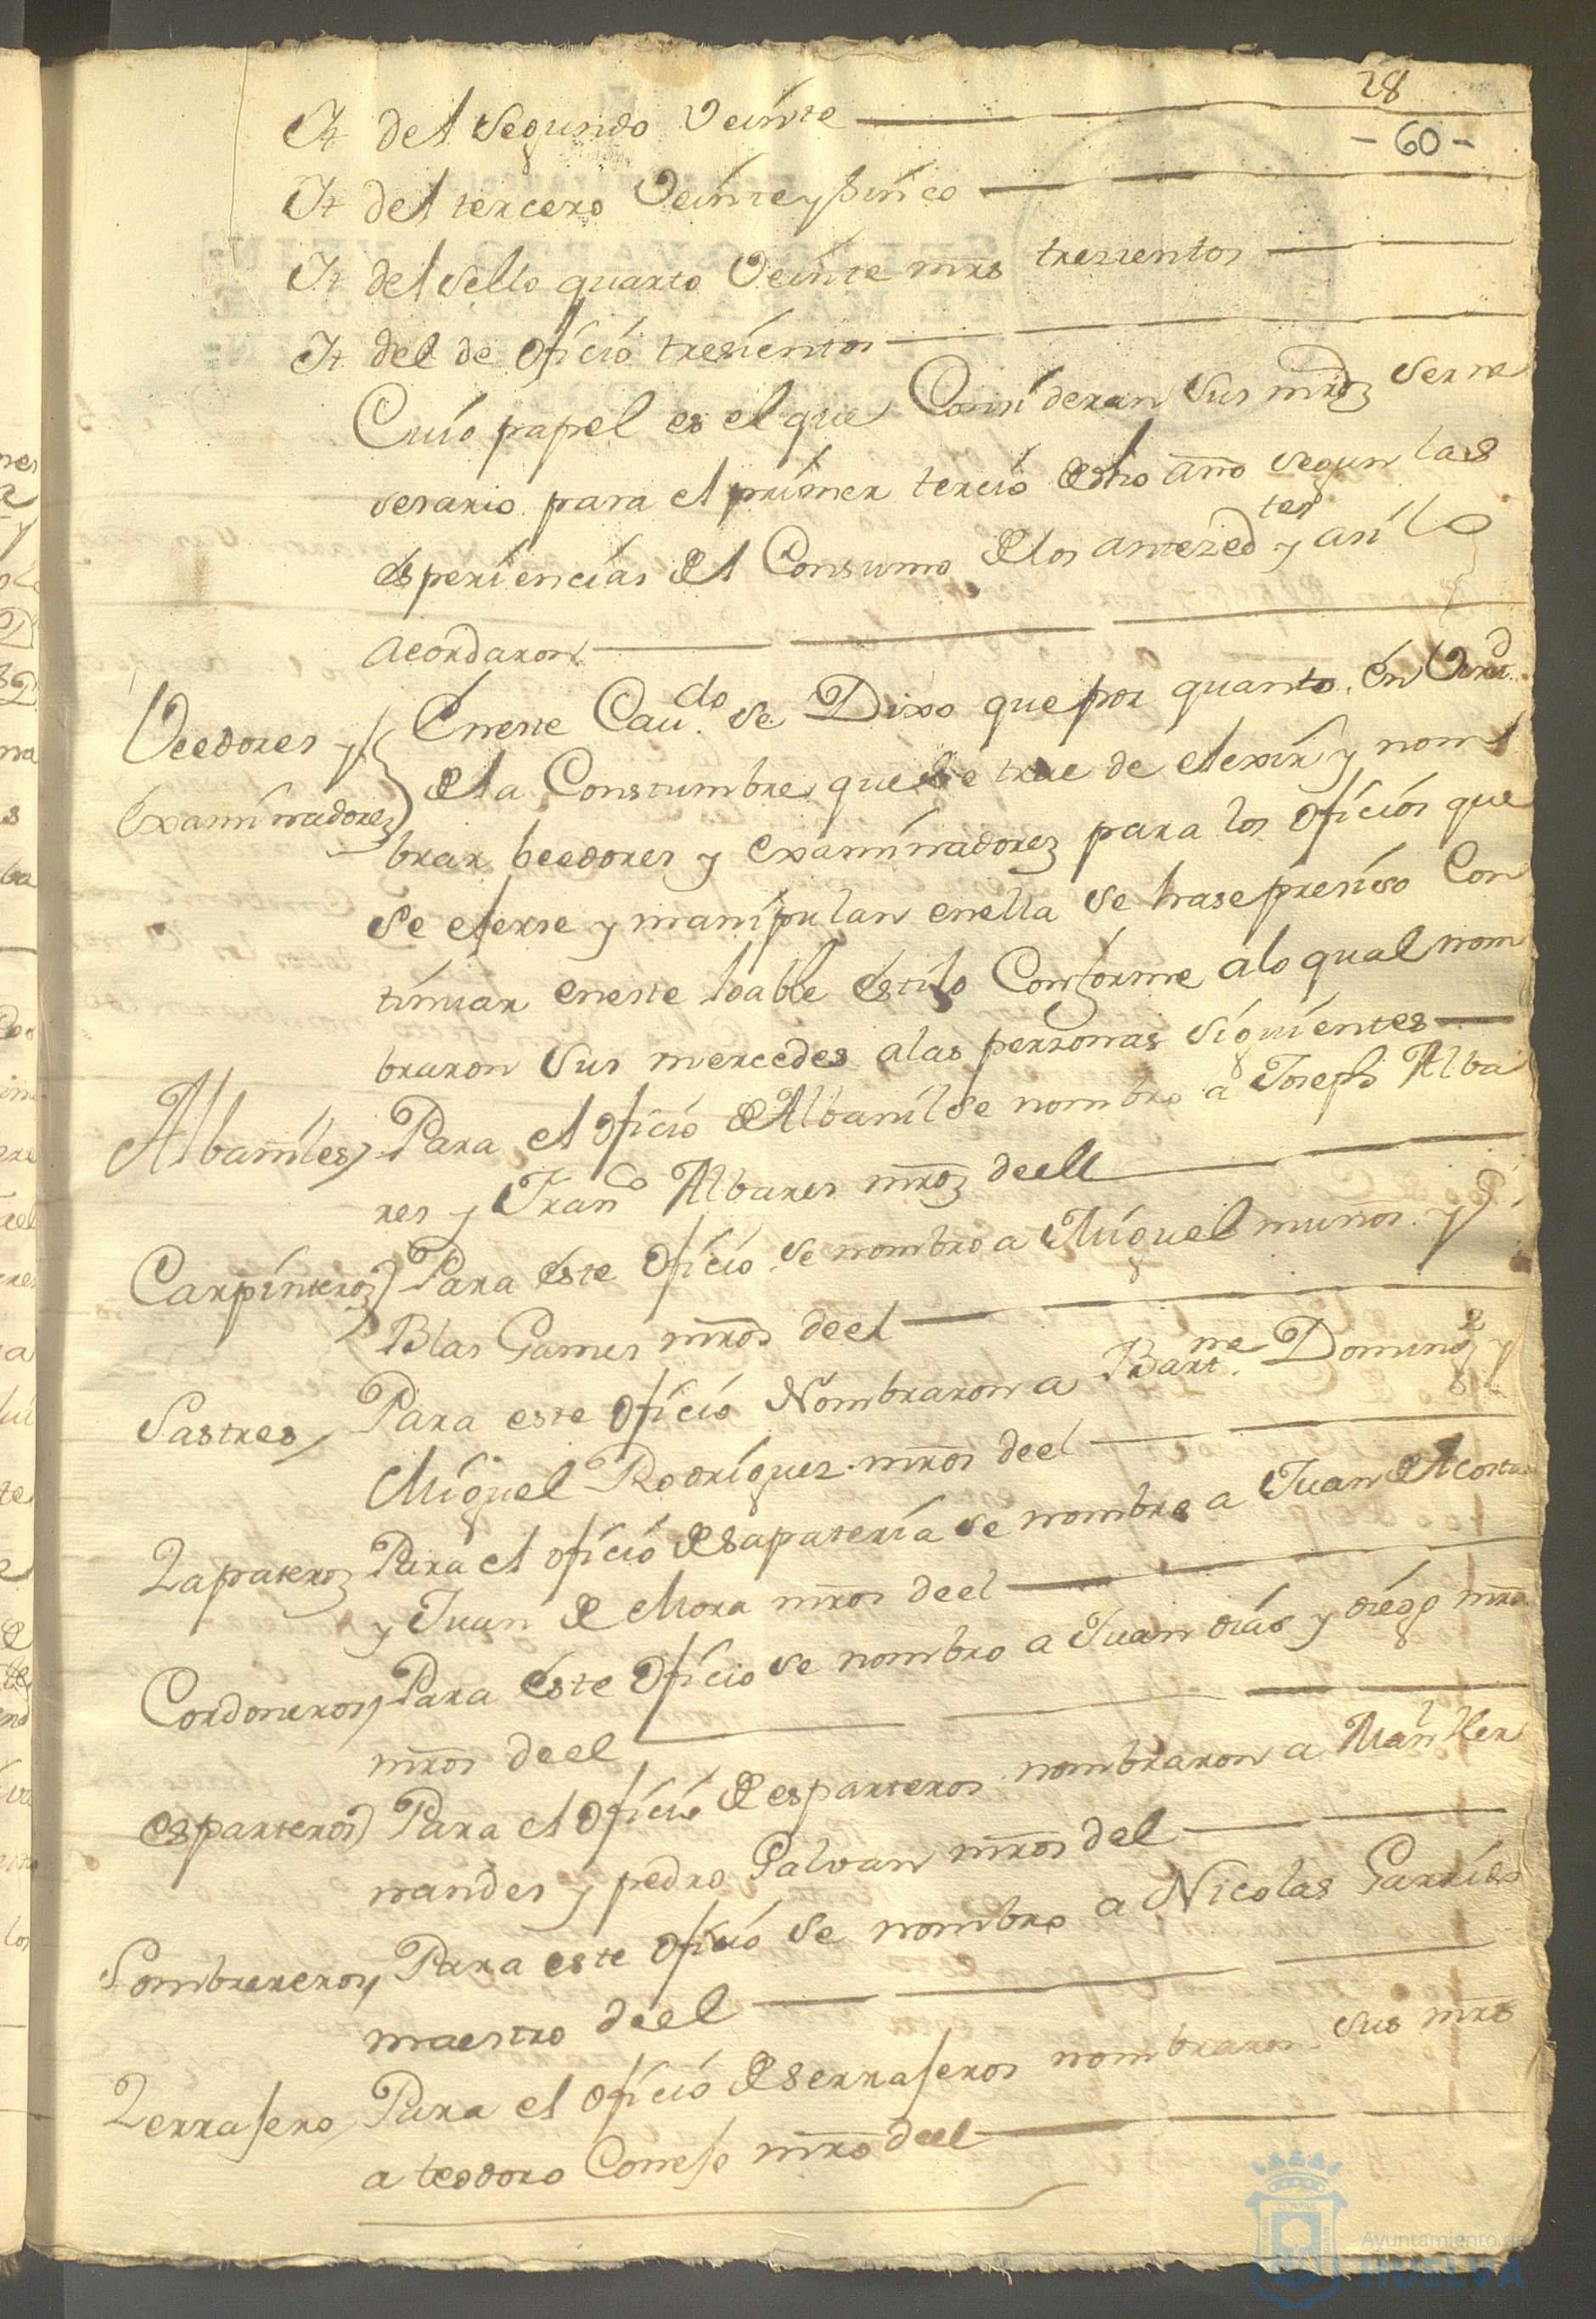 28
- 60 -
It del segundo Veinte
It del tercero Veinte y sinco
It del sello quarto Veinte mrs tresientos
It del de ofício tresientos
Cuío papel es el que Consideran sus mrdz ser ne
sesario para el primer tercio año segun las
esperiencias del Consumo de los antezed tes y así lo
acordaron
Veedores y
Examinadorez
En este Cau do se Dixo que por quanto en Virtd
de la Constumbre que se trae de elexir y nom
brar beedores y examinadorez para los ofícios que
se eferse y manipulan en ella se hase presiso Con
tinuar en este loable estilo Conforme a lo qual nom
braron sus mercedes a las personas siguientes
Albañiles Para el ofício de Albanil se nombro a Joseph Alba
res y Fran co Albares mroz de ell
Carpinteroz Para este ofício se nombro a Miguel muños y
Blas Games mros de el
Sastres Para este ofício Nombraron a Bart me Doming z y
Miguel Rodriguez mros de el
Zapateroz Para el ofício de sapatería se nombro a Juan de Acosta
y Juan de Mora mros de el
Cordoneros Para este ofício se nombro a Juan días y diego
mros de el
esparteros Para el ofício de esparteros nombraron a Man l Her
nandes y pedro Galvan mros del
Sombrereros Para este ofício se nombro a Nicolas Garrido
maestro de el
Zerrajero Para el ofício de serrajeros nombraron sus mrs
a teodoro Conejo mro de el
Ayuntamiento de
HUELVA